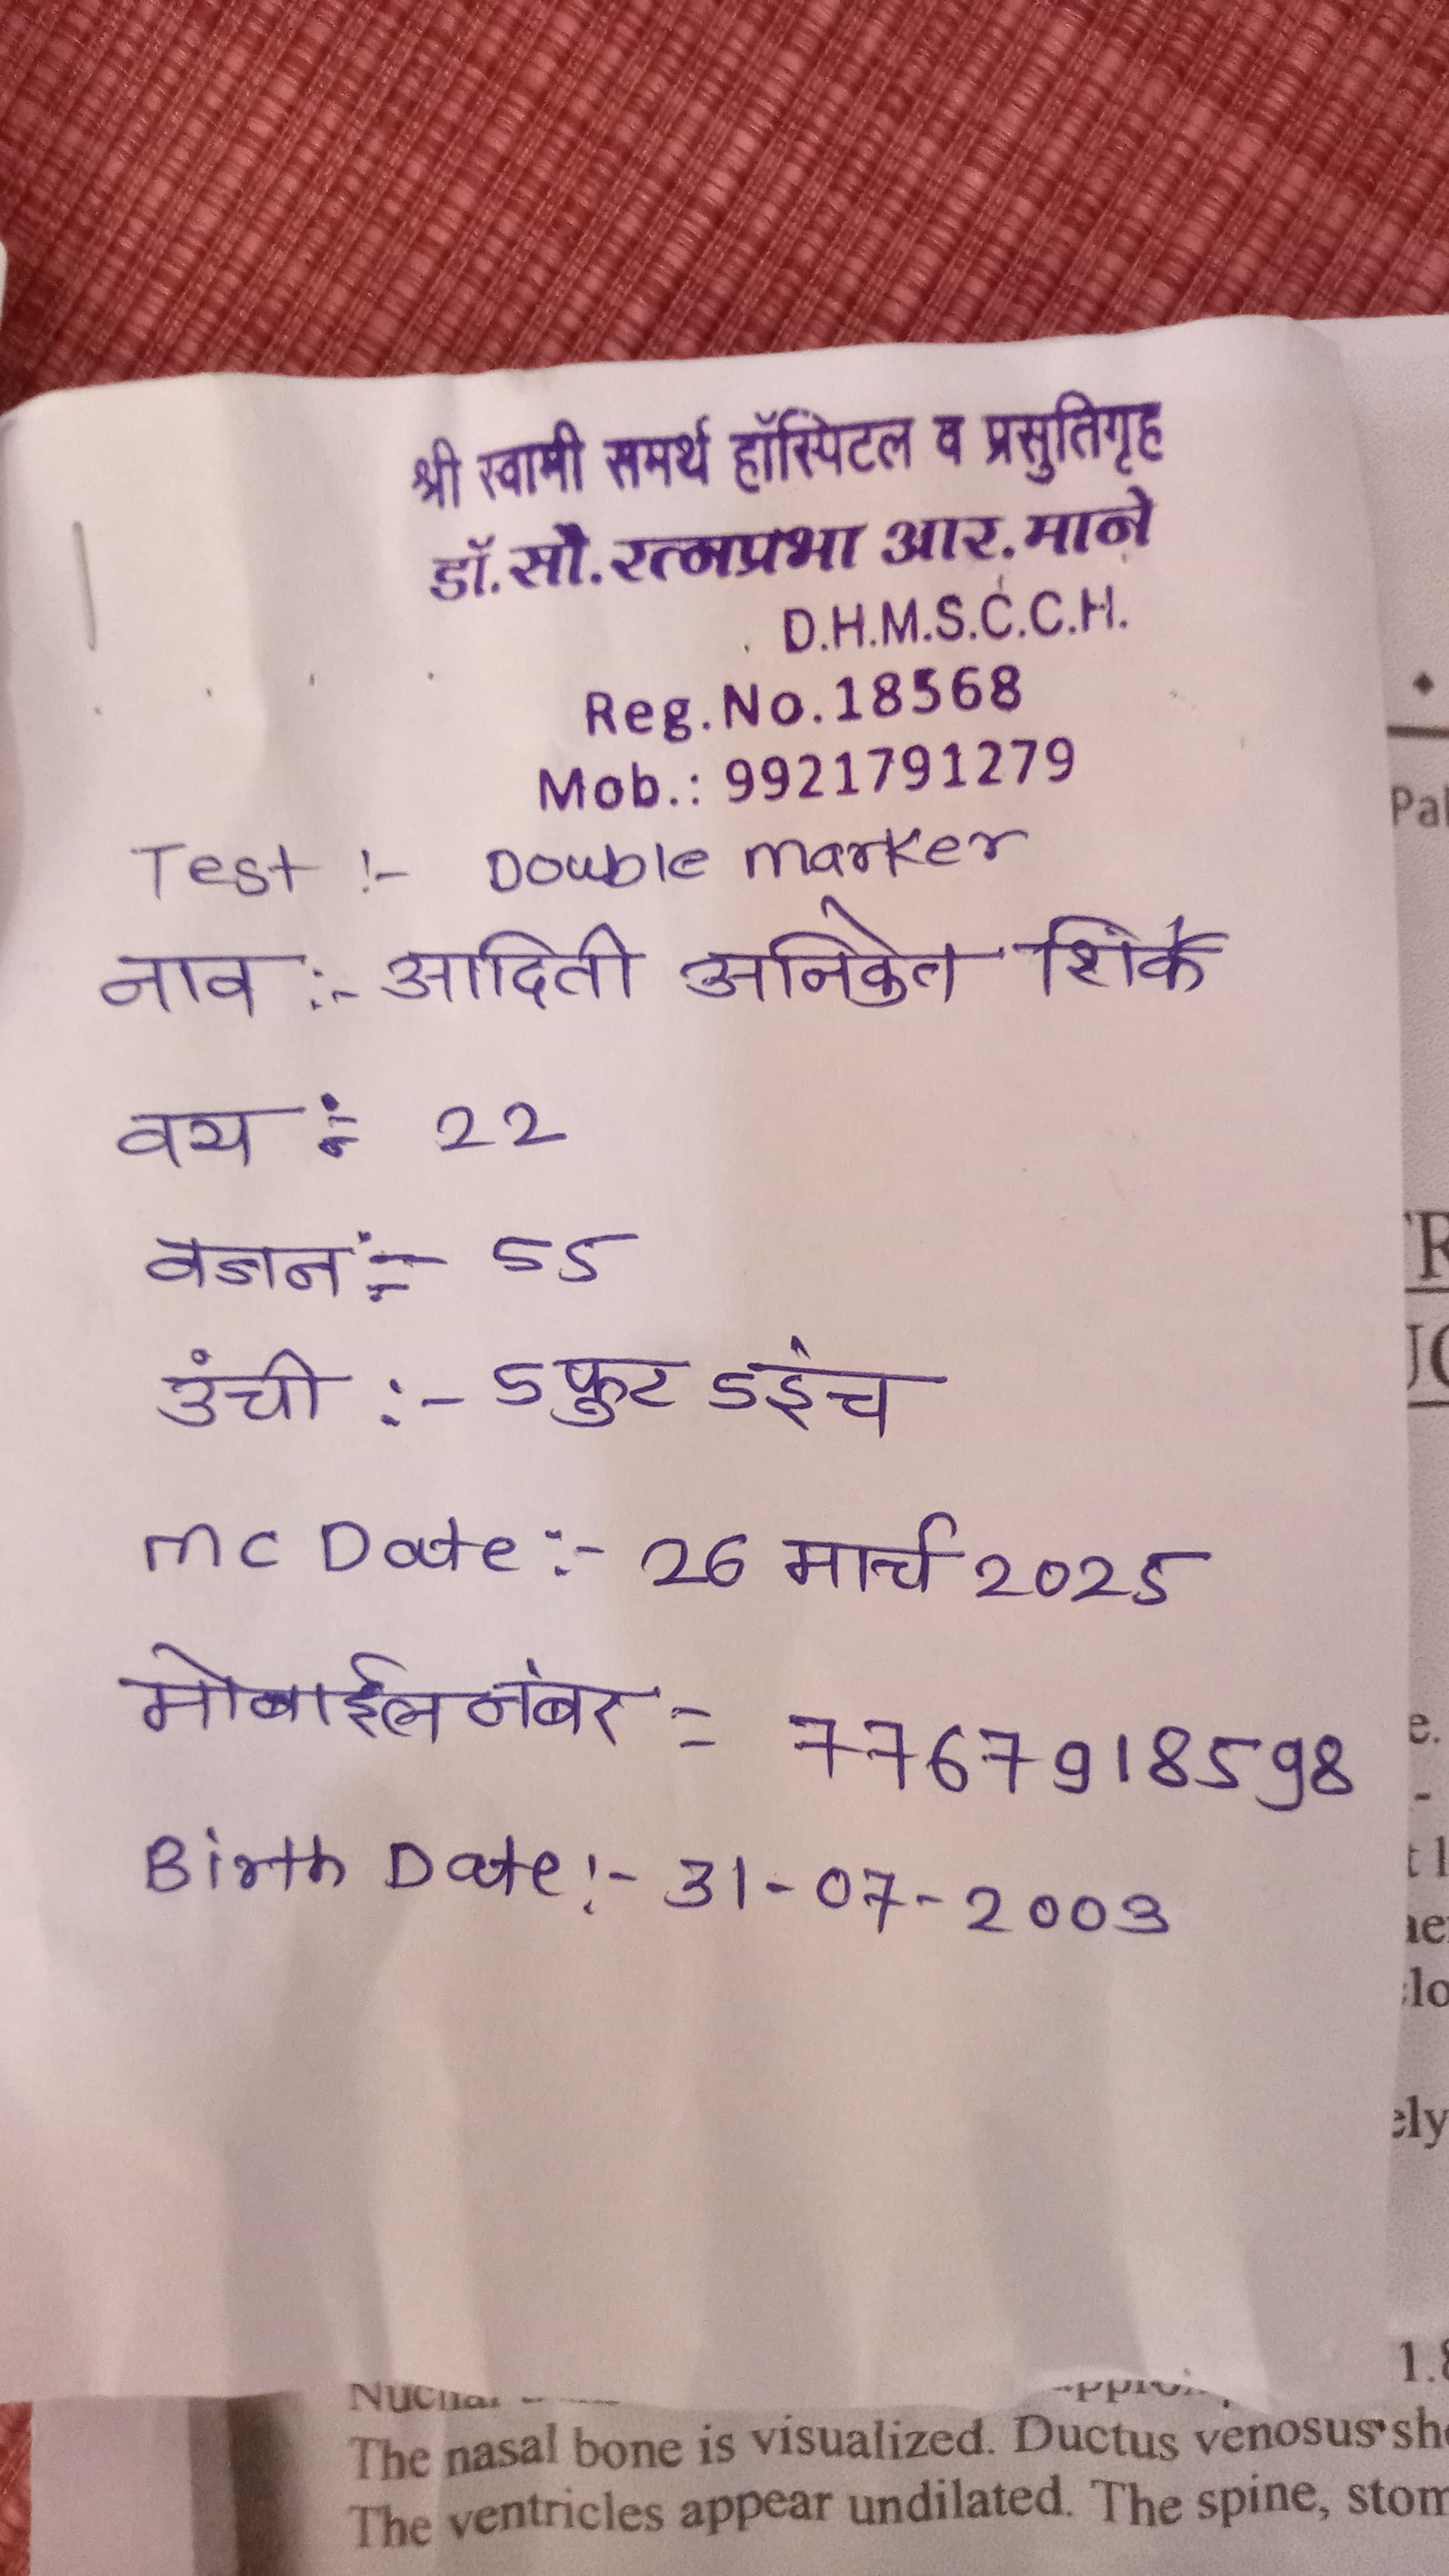 श्री स्वामी समर्थ हॉस्पिटल व प्रसुतिगृह
डॉ.सौ.रत्नप्रभा आर.माने
D.H.M.S.C.C.H.
Reg.No.18568
Mob.: 9921791279
Test :- Double marker
नाव :- आदिती अनिकेत शिर्के
वय :- 22
वजन :- 55
उंची :- 5 फुट 5 इंच
mc Date :- 26 मार्च 2025
मोबाईल नंबर = 7767918598
Birth Date :- 31-07-2003
The nasal bone is visualized. Ductus venosus
The ventricles appear undilated. The spine,